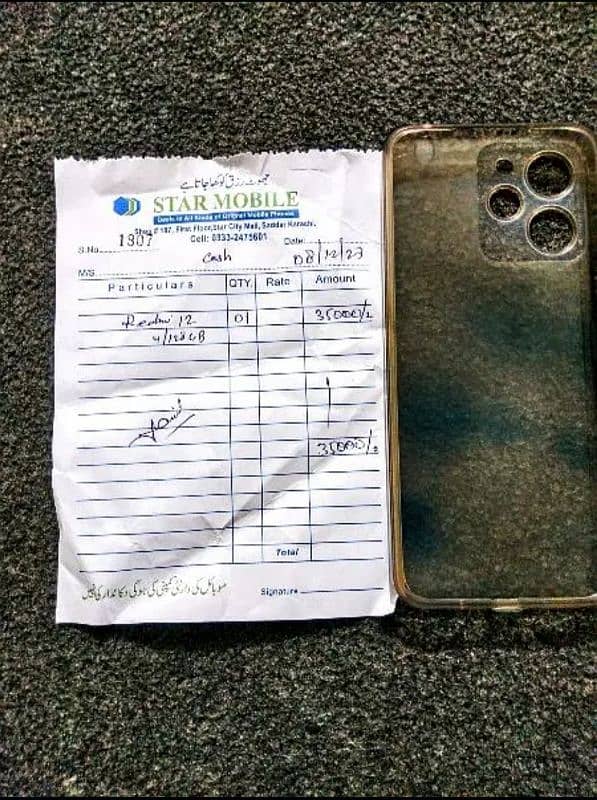 جھوٹ رزق کو کھا جاتا ہے
STAR MOBILE
Deals in All Kinds of Original Mobile Phones
Shop # 187, First Floor, Star City Mall, Saddar Karachi.
Cell: 0333-2475601
S.No. 1307
Date: 08/12/23
M/S. Cash
Particulars QTY. Rate Amount
Redmi 12 01 35000/-
4/128GB
35000/-
Total
موبائل کی وارنٹی کمپنی کی ہوگی دکاندار کی نہیں
Signature